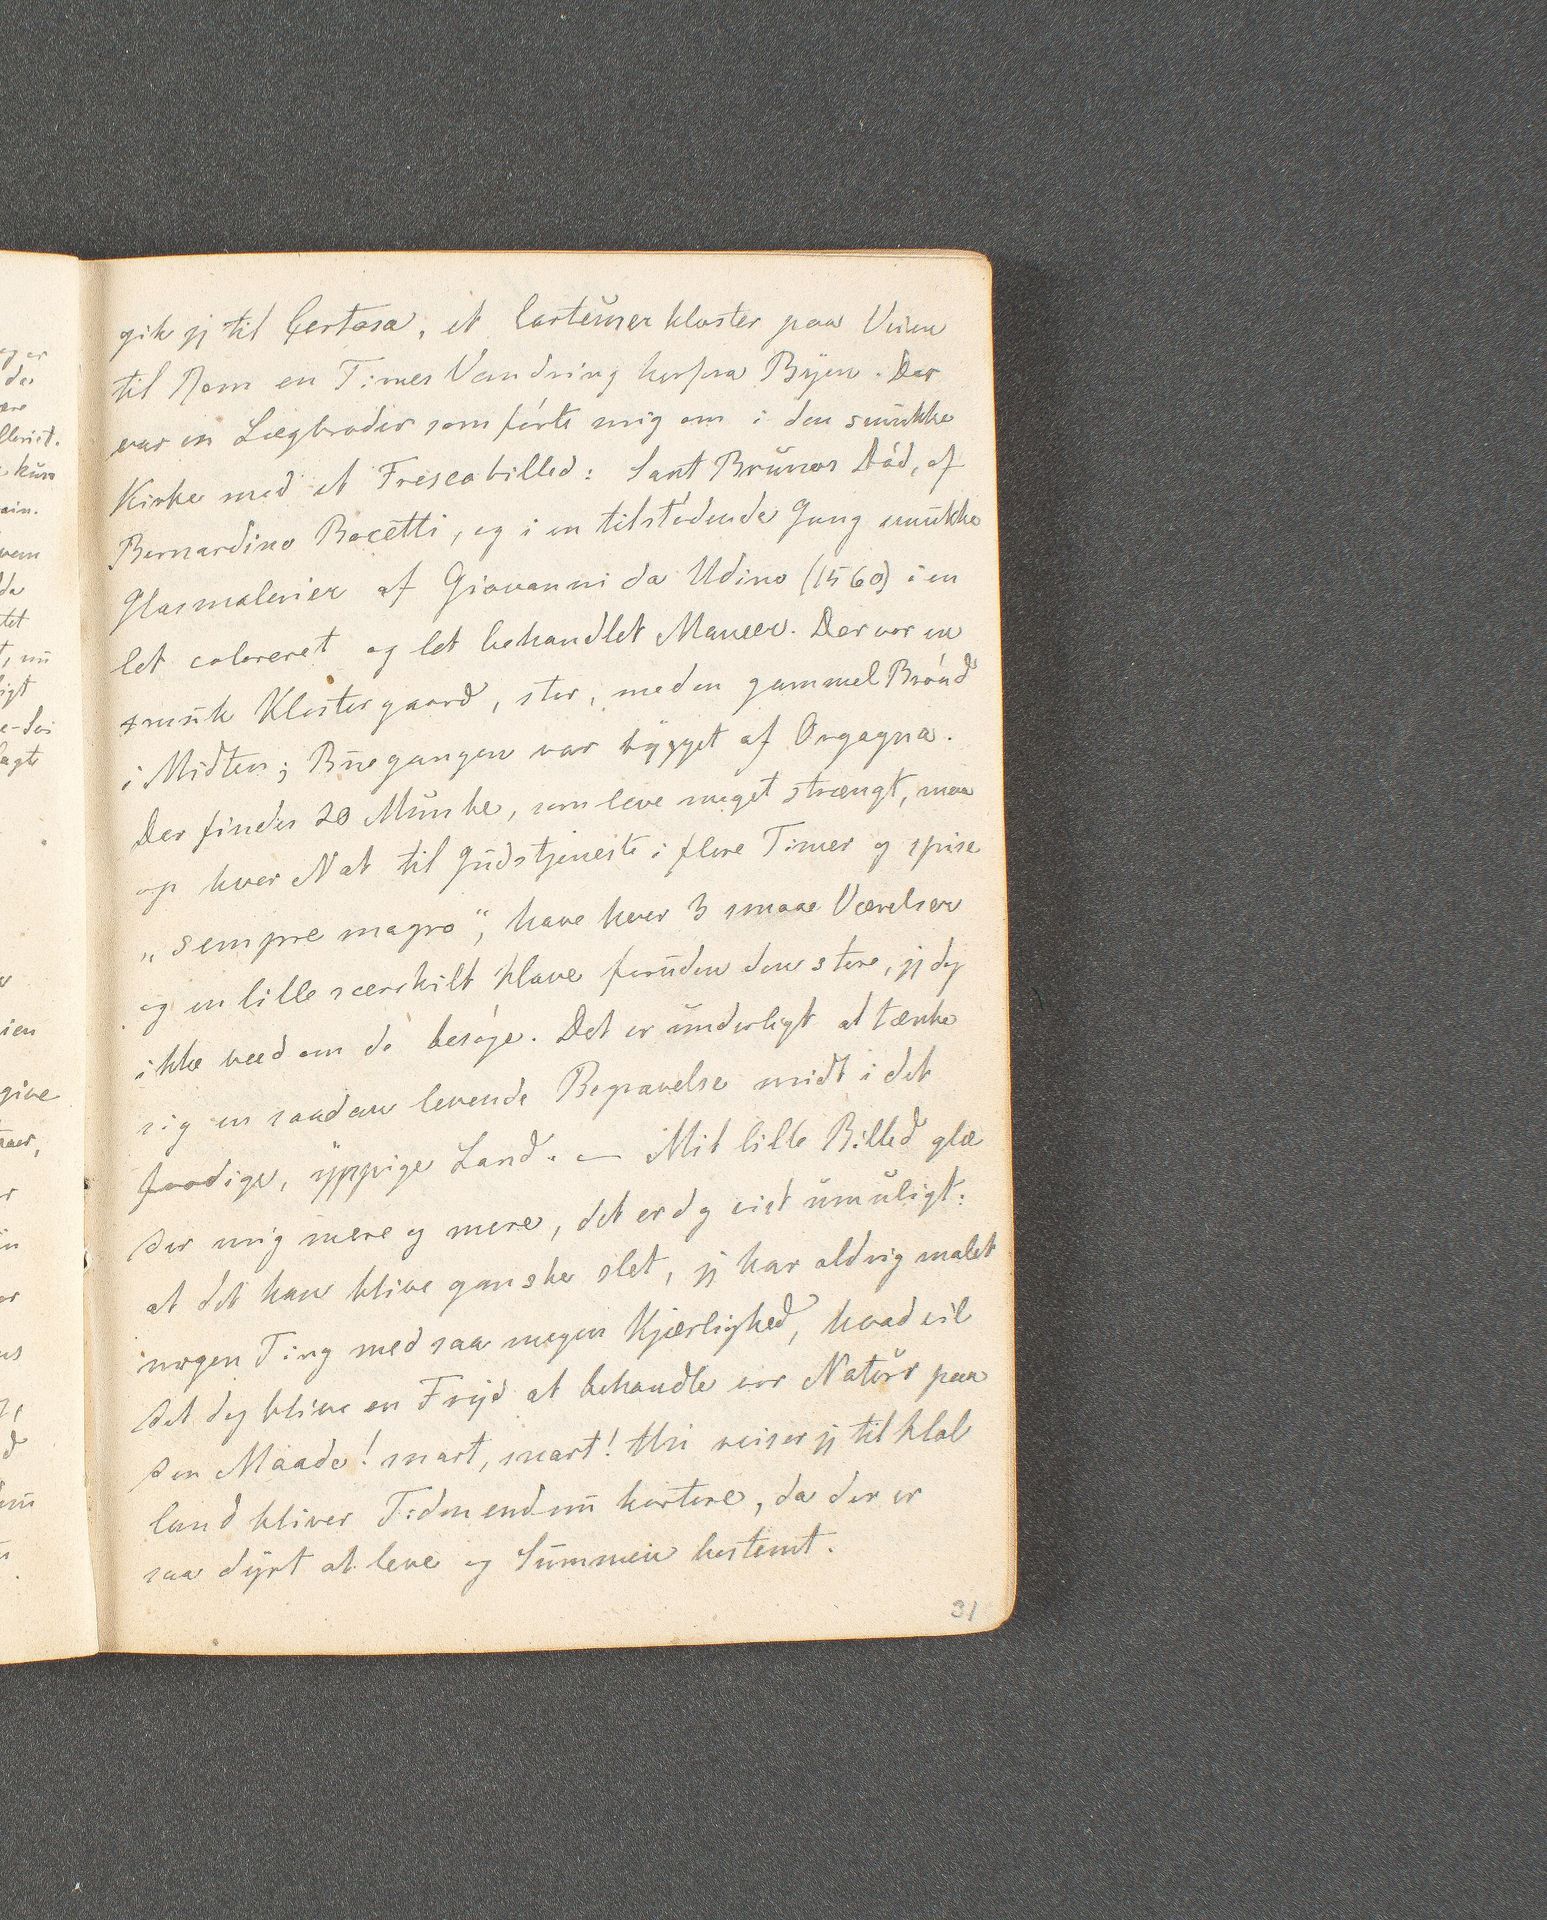 gik jg til Certosa, et Carteuserkloster paa Veien
til Rom en Times Vandring herfra Byen. Der
var en Lægbroder som førte mig om i den smukke
Kirke med et Frescobilled: Sant Brunos Død, af
Bernardino Bocetti, og i en tilstødende Gang smukke
Glasmalerier af Giovanni da Udino (1560) i en
let coloreret og let behandlet Maneer. Der var en
smuk Klostergaard, stor, med en gammel Brønd
i Midten; Buegangen var bygget af Orgagna.
Der findes 20 Munke, som leve meget strængt, maa
op hver Nat til Gudstjeneste i flere Timer og spise
„sempre magro", have hver 3 smaae Værelser
og en lille særskilt Have foruden den store, jg dg
ikke veed om de besøge. Det er underligt at tænke
sig en saadan levende Begravelse midt i det
frodige, yppige Land. — Mit lille Billed glæ
der mig mere og mere, det er dg vist umuligt:
at det kan blive ganske slet, jg har aldrig malet
nogen Ting med saa megen Kjærlighed, hvad vil
det dog blive en Fryd at behandle vor Natur paa
den Maade! snart, snart! Hvi reiser jg til Hol
land bliver Tiden endnu kortere, da der er
saa dyrt at leve og Summen bestemt.
31